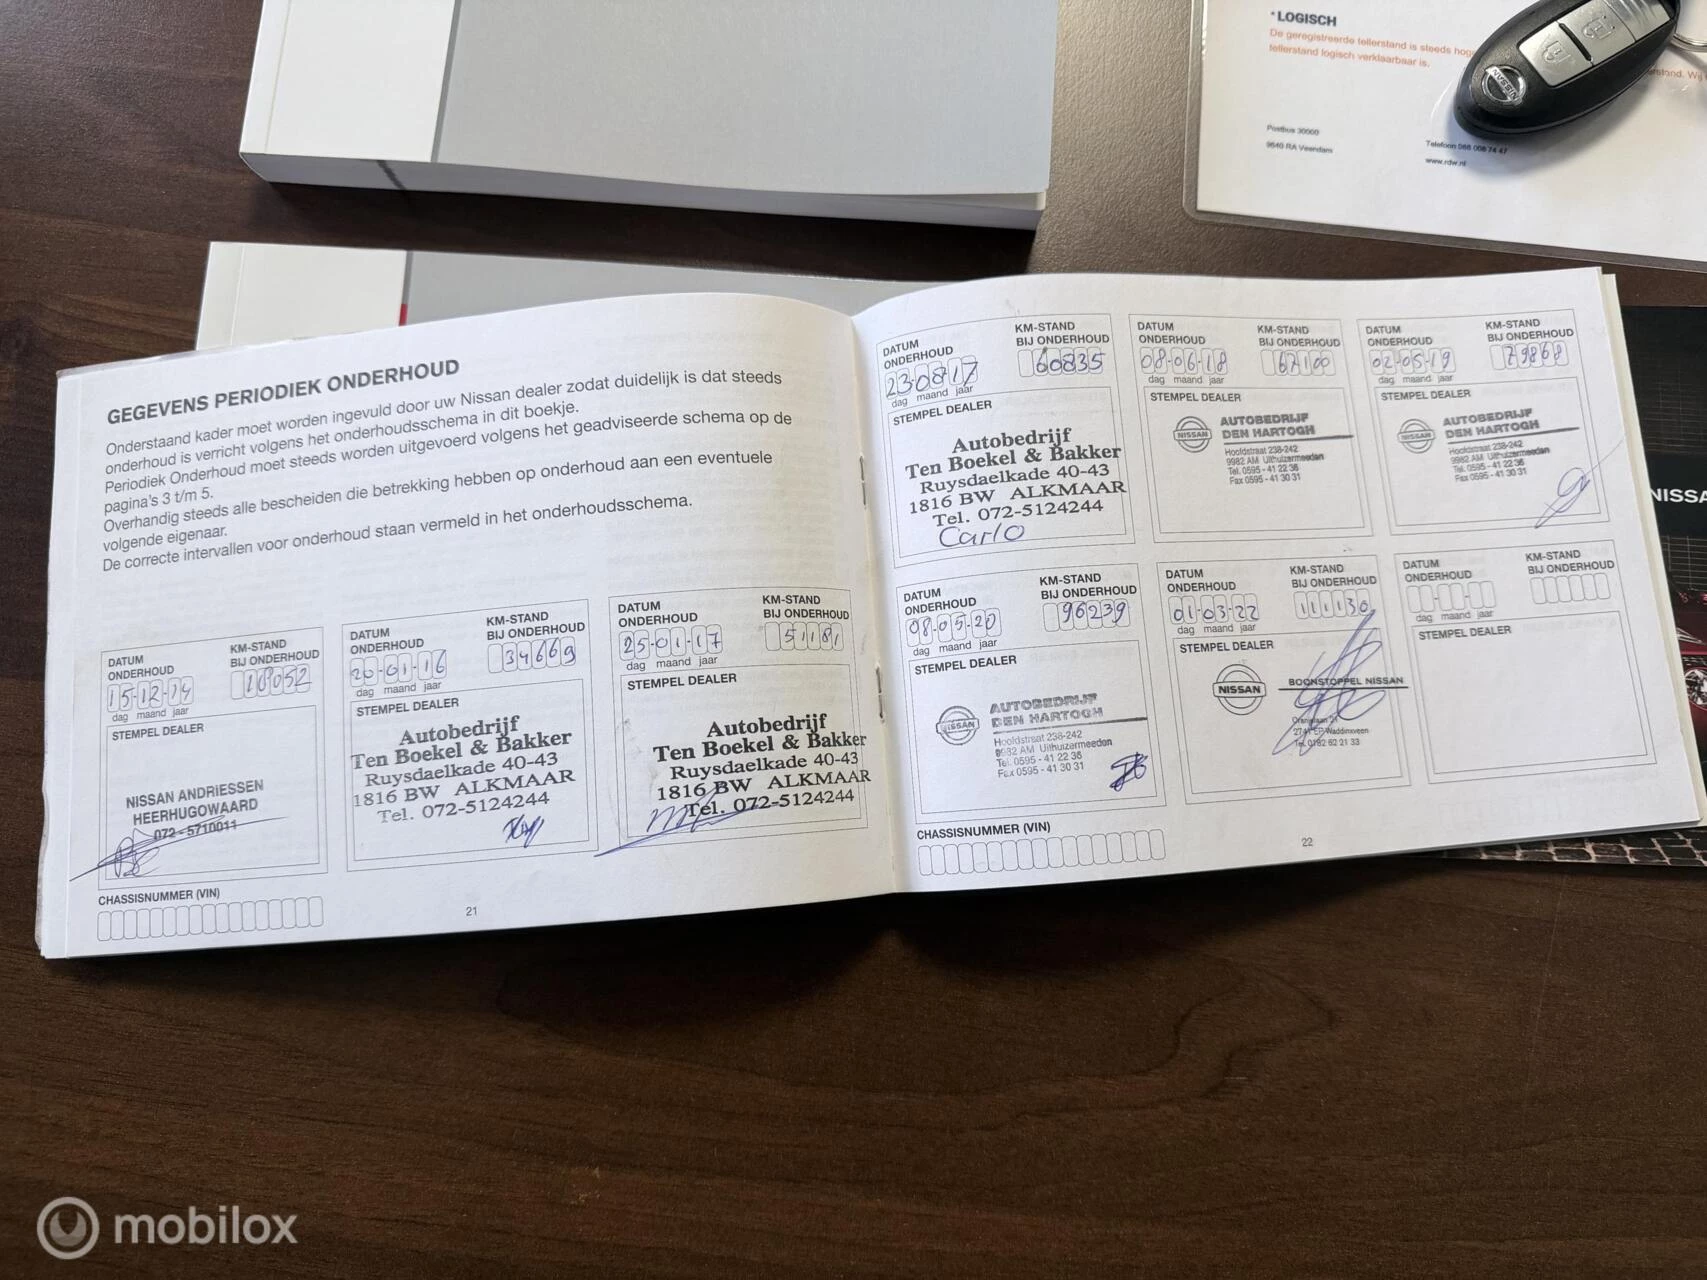 *LOGISCH
De geregistreerde tellerstand is steeds
tellerstand logisch verklaarbaar is.
Postbus 30000
9640 RA Veendam
Telefoon 088 008 74 47
www.rdw.nl
NISSAN
GEGEVENS PERIODIEK ONDERHOUD
Onderstaand kader moet worden ingevuld door uw Nissan dealer zodat duidelijk is dat steeds
onderhoud is verricht volgens het onderhoudsschema in dit boekje.
Periodiek Onderhoud moet steeds worden uitgevoerd volgens het geadviseerde schema op de
pagina's 3 t/m 5.
Overhandig steeds alle bescheiden die betrekking hebben op onderhoud aan een eventuele
volgende eigenaar.
De correcte intervallen voor onderhoud staan vermeld in het onderhoudsschema.
DATUM
ONDERHOUD
KM-STAND
BIJ ONDERHOUD
15-12-14
18052
dag maand jaar
STEMPEL DEALER
NISSAN ANDRIESSEN
HEERHUGOWAARD
072 - 5710011
CHASSISNUMMER (VIN)
DATUM
ONDERHOUD
KM-STAND
BIJ ONDERHOUD
20-01-16
34669
dag maand jaar
STEMPEL DEALER
Autobedrijf
Ten Boekel & Bakker
Ruysdaelkade 40-43
1816 BW ALKMAAR
Tel. 072-5124244
DATUM
ONDERHOUD
KM-STAND
BIJ ONDERHOUD
25-01-17
51181
dag maand jaar
STEMPEL DEALER
Autobedrijf
Ten Boekel & Bakker
Ruysdaelkade 40-43
1816 BW ALKMAAR
Tel. 072-5124244
21
DATUM
ONDERHOUD
KM-STAND
BIJ ONDERHOUD
23-08-17
60835
dag maand jaar
STEMPEL DEALER
Autobedrijf
Ten Boekel & Bakker
Ruysdaelkade 40-43
1816 BW ALKMAAR
Tel. 072-5124244
Carlo
DATUM
ONDERHOUD
KM-STAND
BIJ ONDERHOUD
08-06-18
67100
dag maand jaar
STEMPEL DEALER
NISSAN
AUTOBEDRIJF
DEN HARTOGH
Hoofdstraat 238-242
9982 AM Uithuizermeeden
Tel. 0595 - 41 22 36
Fax 0595 - 41 30 31
DATUM
ONDERHOUD
KM-STAND
BIJ ONDERHOUD
02-05-19
79868
dag maand jaar
STEMPEL DEALER
NISSAN
AUTOBEDRIJF
DEN HARTOGH
Hoofdstraat 238-242
9982 AM Uithuizermeeden
Tel. 0595 - 41 22 36
Fax 0595 - 41 30 31
DATUM
ONDERHOUD
KM-STAND
BIJ ONDERHOUD
08-05-20
96239
dag maand jaar
STEMPEL DEALER
NISSAN
AUTOBEDRIJF
DEN HARTOGH
Hoofdstraat 238-242
9982 AM Uithuizermeeden
Tel. 0595 - 41 22 36
Fax 0595 - 41 30 31
DATUM
ONDERHOUD
KM-STAND
BIJ ONDERHOUD
01-03-22
111130
dag maand jaar
STEMPEL DEALER
NISSAN
BOONSTOPPEL NISSAN
Oranjelaan 21
2741 EP Waddinxveen
Tel. 0182 62 21 33
DATUM
ONDERHOUD
KM-STAND
BIJ ONDERHOUD
dag maand jaar
STEMPEL DEALER
CHASSISNUMMER (VIN)
22
NISSA
mobilox